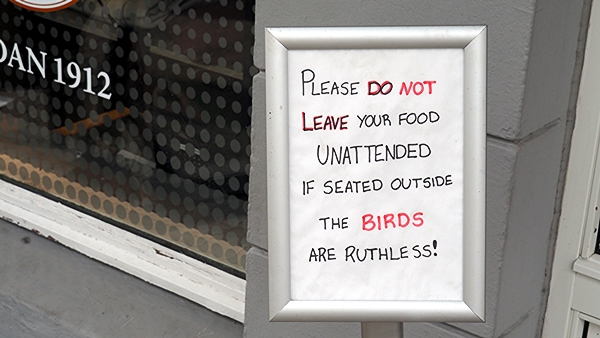 DAN 1912
PLEASE DO NOT
LEAVE YOUR FOOD
UNATTENDED
IF SEATED OUTSIDE
THE BIRDS
ARE RUTHLESS!